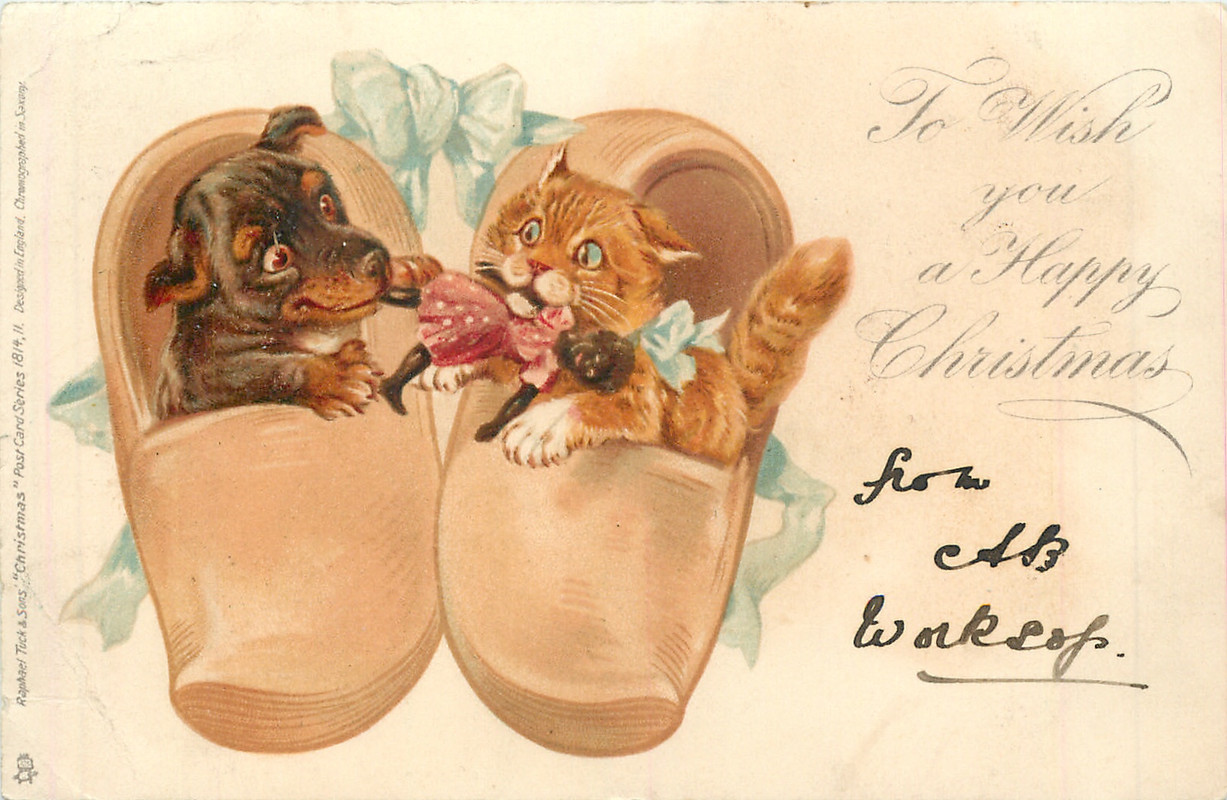 To Wish
you
a Happy
Christmas
from
AB
Worksop.
Raphael Tuck & Sons' "Christmas" Post Card Series 1814, II. Designed in England. Chromographed in Saxony.